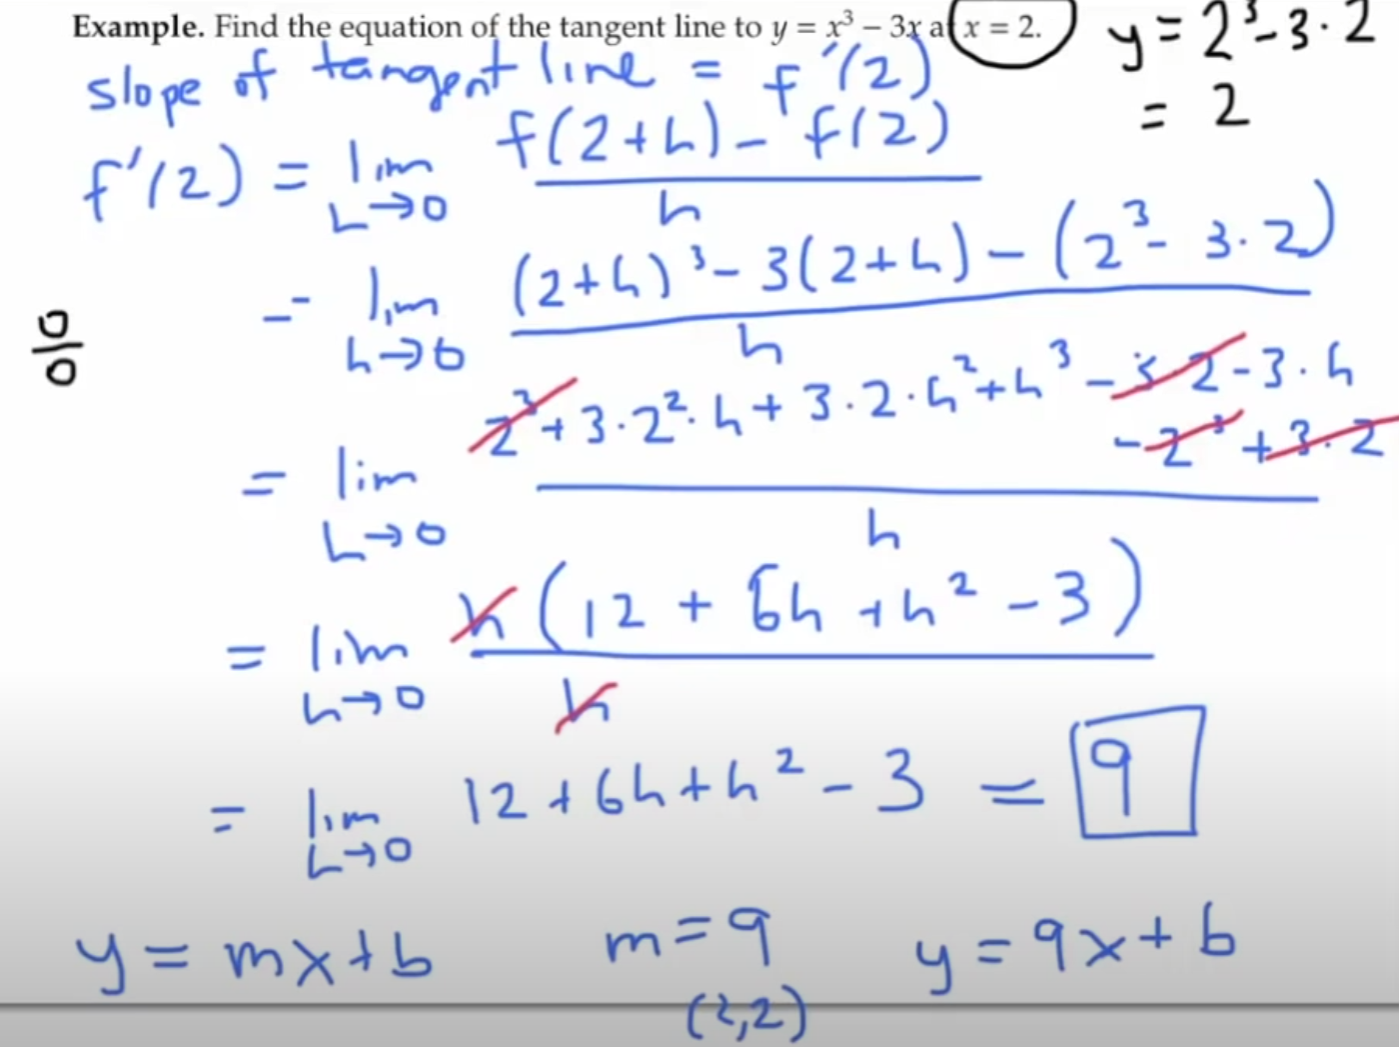 Example. Find the equation of the tangent line to y = x³ − 3x at x = 2.
y = 2³ - 3 · 2
= 2
slope of tangent line = f'(2)
f'(2) = lim h→0 (f(2+h) - f(2)) / h
= lim h→0 ((2+h)³ - 3(2+h) - (2³ - 3·2)) / h
0/0
= lim h→0 (2³ + 3·2²·h + 3·2·h² + h³ - 3·2 - 3·h - 2³ + 3·2) / h
= lim h→0 h(12 + 6h + h² - 3) / h
= lim h→0 12 + 6h + h² - 3 = 9
y = mx + b m = 9 y = 9x + b
(2,2)